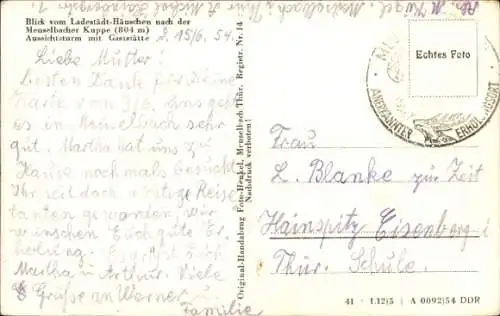 Blick vom Ladestädt-Häuschen nach der
Meuselbacher Kuppe (804 m)
Aussichtsturm mit Gaststätte
15/6. 54.
Liebe Mutter!
Besten Dank für Deine
Karte vom 3/6. Uns geht
es in Meuselbach sehr
gut. Martha hat uns zu
Hause noch mals besucht
Ihr seit doch Reise
tanten geworden, wir
wünschen Euch gute Er
holung. Es grüßt Euch
Martha u Arthur. Viele
Grüße an Werner u.
Familie
Original-Handabzug Foto-Henkel, Meuselbach-Thür. Registr. Nr. 14
Nachdruck verboten!
Echtes Foto
ANERKANNTER ERHOLUNGSORT
Frau
L. Blanke zur Zeit
Hainspitz Eisenberg i
Thür. Schule.
41 · L12|5 | A 0092|54 DDR